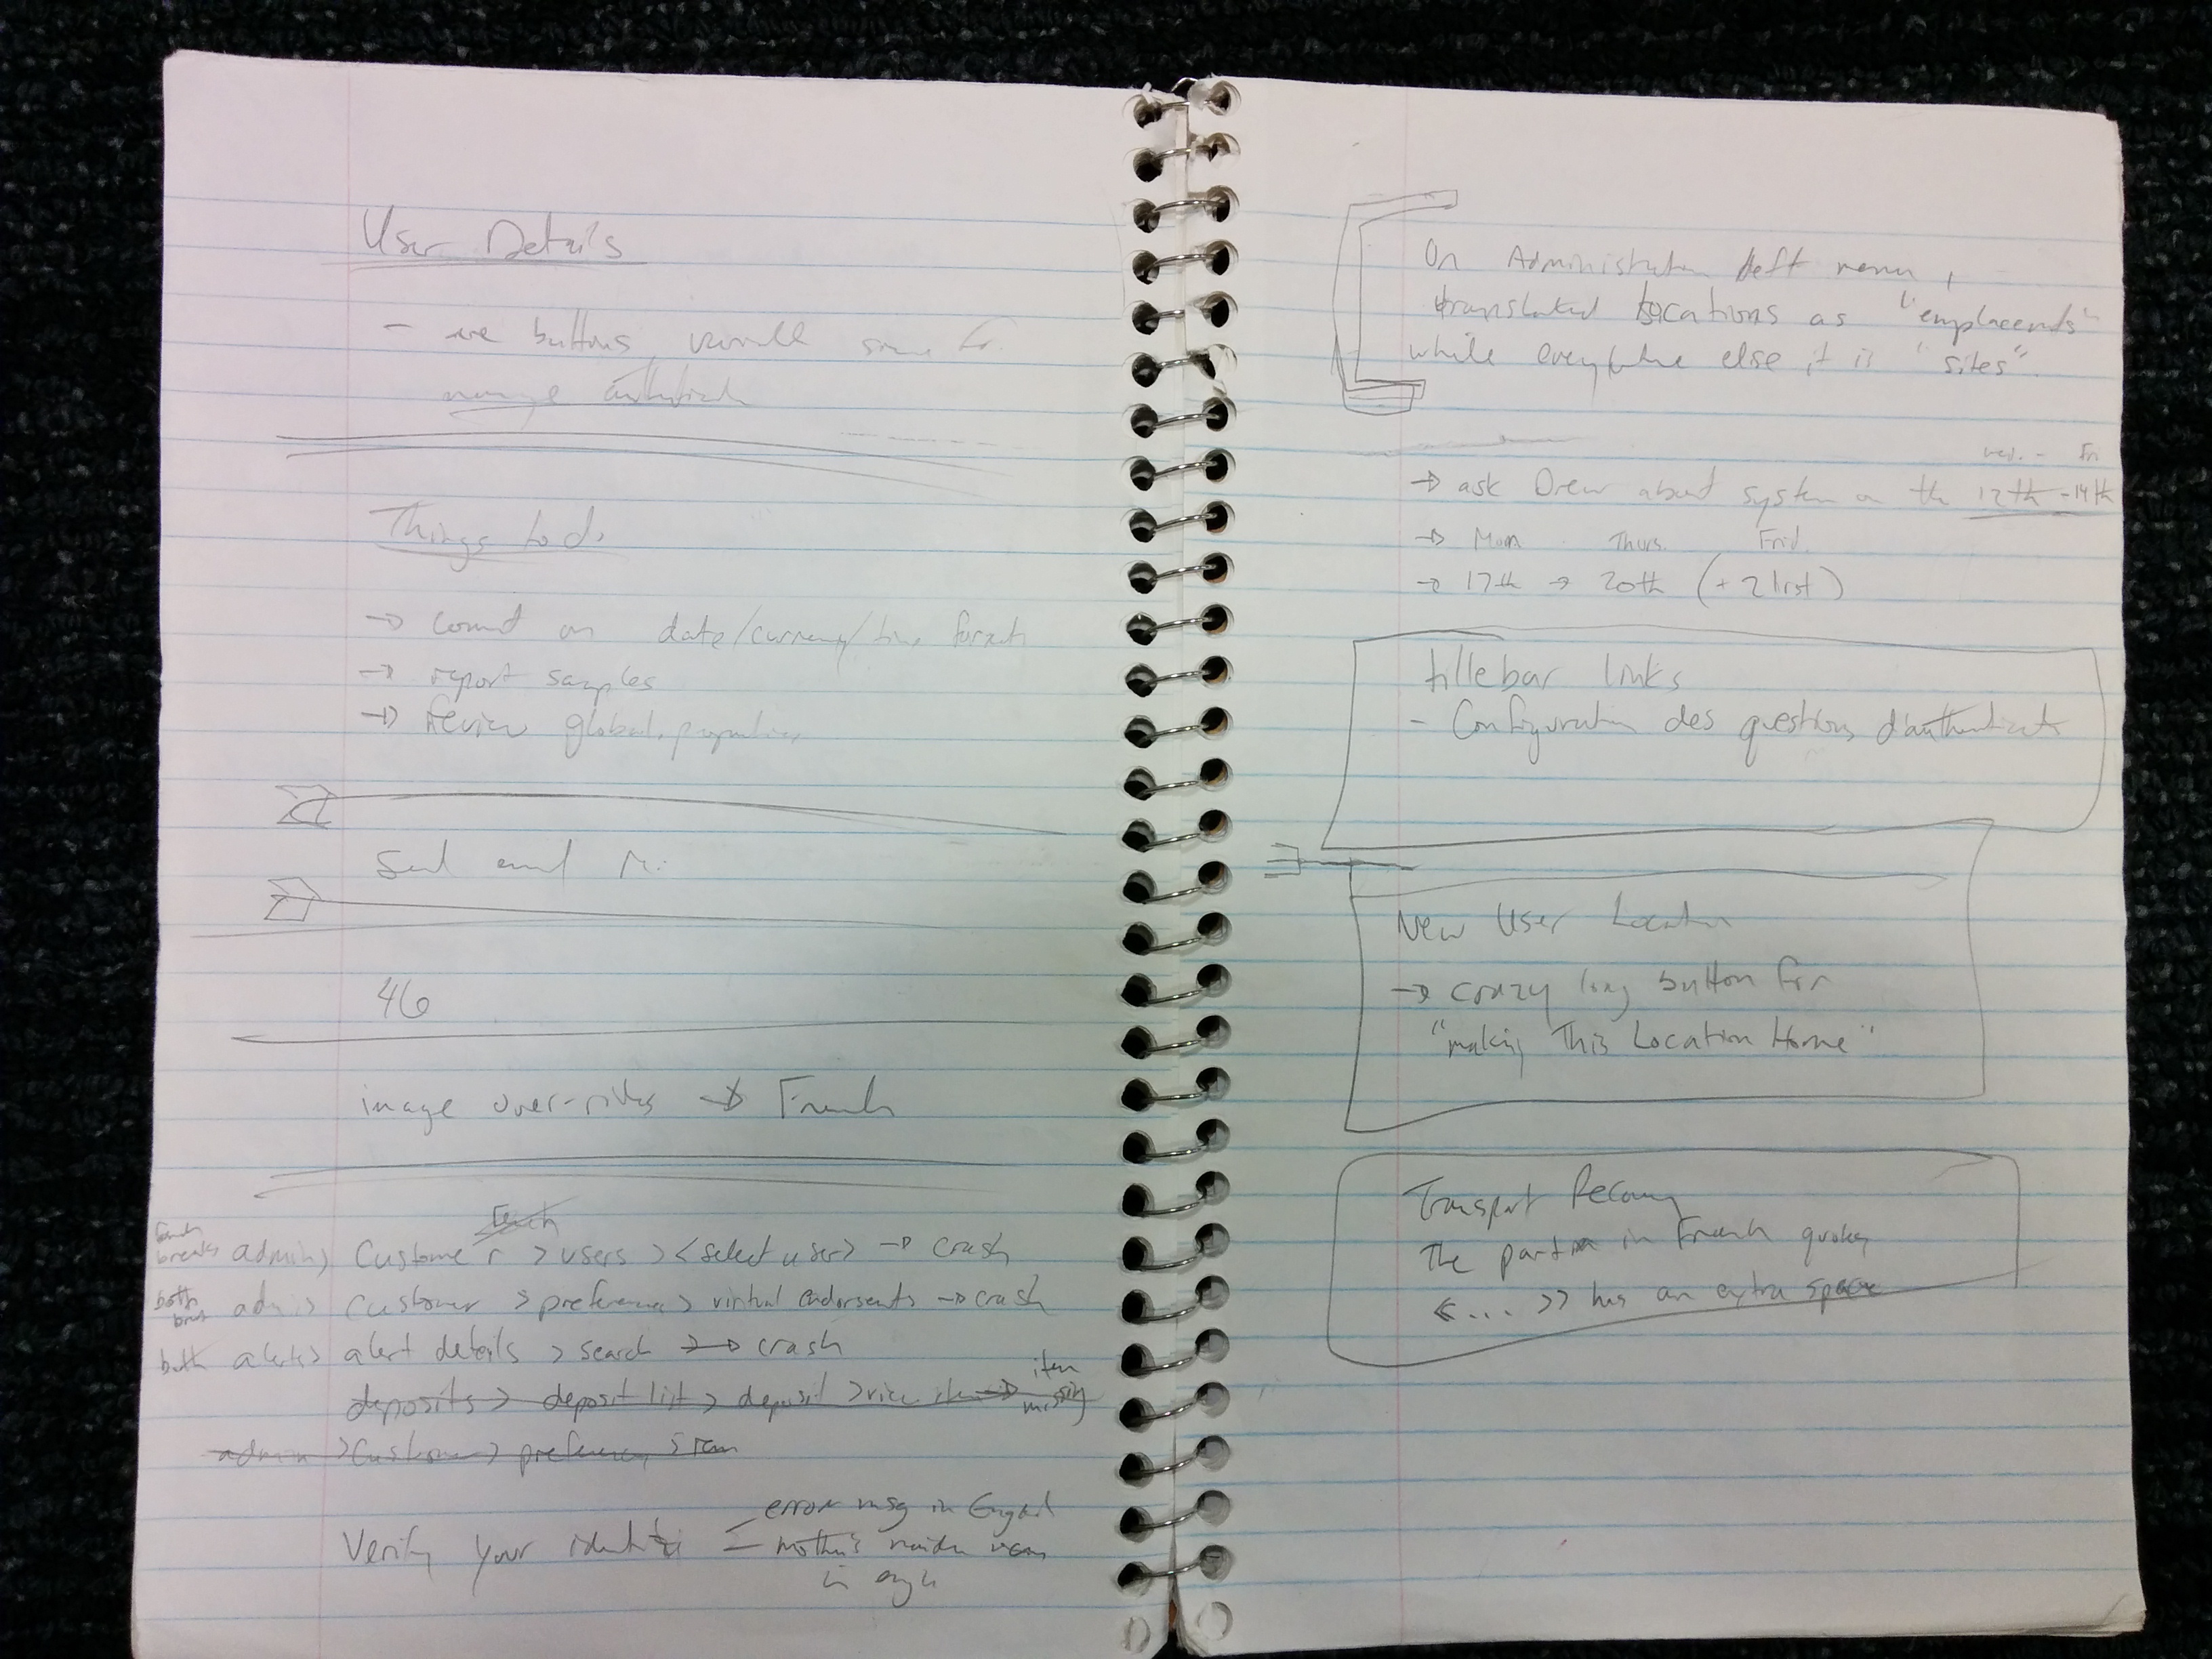 User Details
- buttons
Things to do
→ on date/currency/time formats
→ report samples
→ review global properties
46
image over-rides → French
French
French breaks admin> Customer > users > <select user> → crash
both admin > customer > preferences > virtual endorsements → crash
both alerts> alert details > search → crash
deposits > deposit list > deposit > item missing
admin > Customer > preferences > item
Verify your identity
error msg in English
mother's maiden name
in
On Administration left menu,
translated Locations as "emplacements"
while everywhere else it is "sites".
wed. - Fri
→ ask Drew about system on the 12th - 14th
→ Mon Thurs. Frid.
→ 17th → 20th (+ 21rst)
titlebar links
- Configuration des questions d'authenticat
New User Location
→ crazy long button for
"making This Location Home"
Transport
The part in French quotes
<< ... >> has an extra space